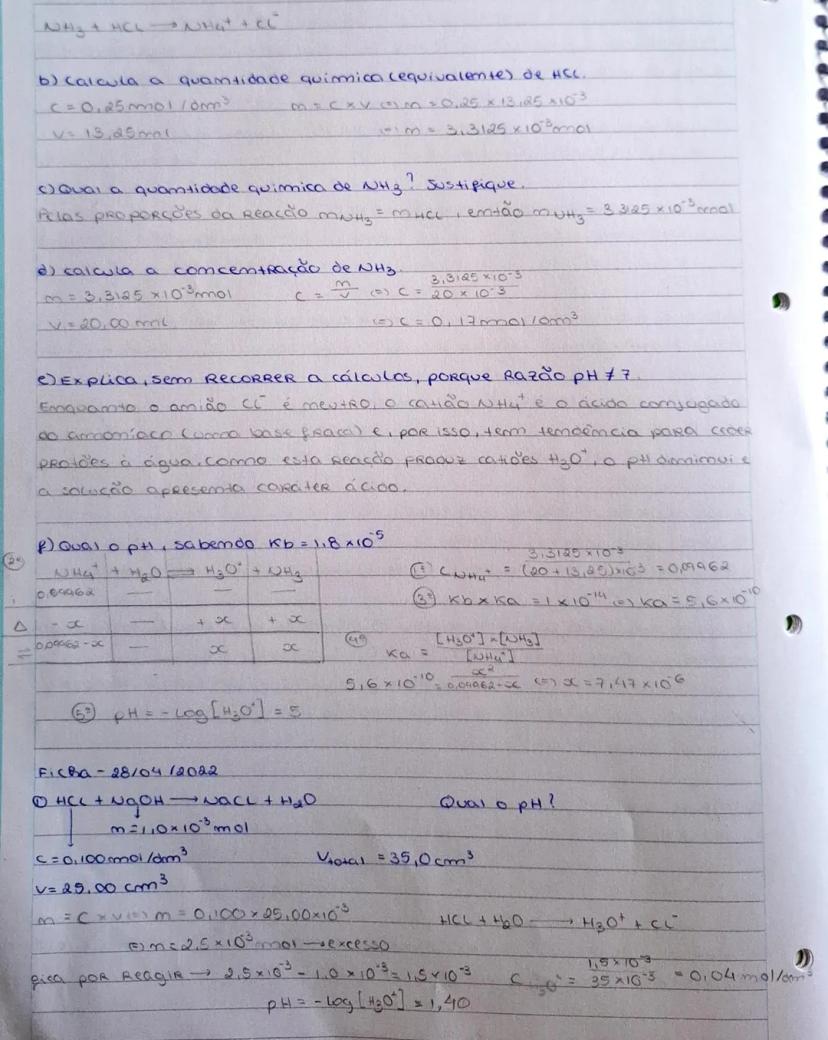 NH₃ + HCl → NH₄⁺ + Cl⁻
b) Calcula a quantidade química (equivalente) de HCl.
C = 0,25 mol/dm³ n = C × V (=) n = 0,25 × 13,25 × 10⁻³
V = 13,25 mL (=) n = 3,3125 × 10⁻³ mol
c) Qual a quantidade química de NH₃? Justifique.
Pelas proporções da reacção nNH₃ = nHCl, então nNH₃ = 3,3125 × 10⁻³ mol
d) Calcula a concentração de NH₃.
n = 3,3125 × 10⁻³ mol C = n/V (=) C = 3,3125 × 10⁻³ / 20 × 10⁻³
V = 20,00 mL (=) C = 0,17 mol/dm³
e) Explica, sem recorrer a cálculos, porque razão pH ≠ 7.
Enquanto o anião Cl⁻ é neutro, o catião NH₄⁺ é o ácido conjugado
do amoníaco (uma base fraca) e, por isso, tem tendência para ceder
protões à água. Como esta reacção produz catiões H₃O⁺, o pH diminui e
a solução apresenta caráter ácido.
f) Qual o pH, sabendo Kb = 1,8 × 10⁻⁵
2º NH₄⁺ + H₂O → H₃O⁺ + NH₃ 1º C NH₄⁺ = 3,3125 × 10⁻³ / (20 + 13,25) × 10⁻³ = 0,09962
i 0,09962 — — — 3º Kb × Ka = 1 × 10⁻¹⁴ (=) Ka = 5,6 × 10⁻¹⁰
Δ - x — + x + x
= 0,09962 - x — x x 4º Ka = [H₃O⁺] × [NH₃] / [NH₄⁺]
5,6 × 10⁻¹⁰ = x² / 0,09962 - x (=) x = 7,47 × 10⁻⁶
5º pH = - log [H₃O⁺] = 5
Ficha - 28/04/2022
① HCl + NaOH → NaCl + H₂O Qual o pH?
n = 1,0 × 10⁻³ mol
C = 0,100 mol/dm³ Vtotal = 35,0 cm³
V = 25,00 cm³
n = C × V (=) n = 0,100 × 25,00 × 10⁻³ HCl + H₂O → H₃O⁺ + Cl⁻
(=) n = 2,5 × 10⁻³ mol → excesso
fica por reagir → 2,5 × 10⁻³ - 1,0 × 10⁻³ = 1,5 × 10⁻³ C H₃O⁺ = 1,5 × 10⁻³ / 35 × 10⁻³ = 0,04 mol/dm³
pH = - log [H₃O⁺] = 1,40